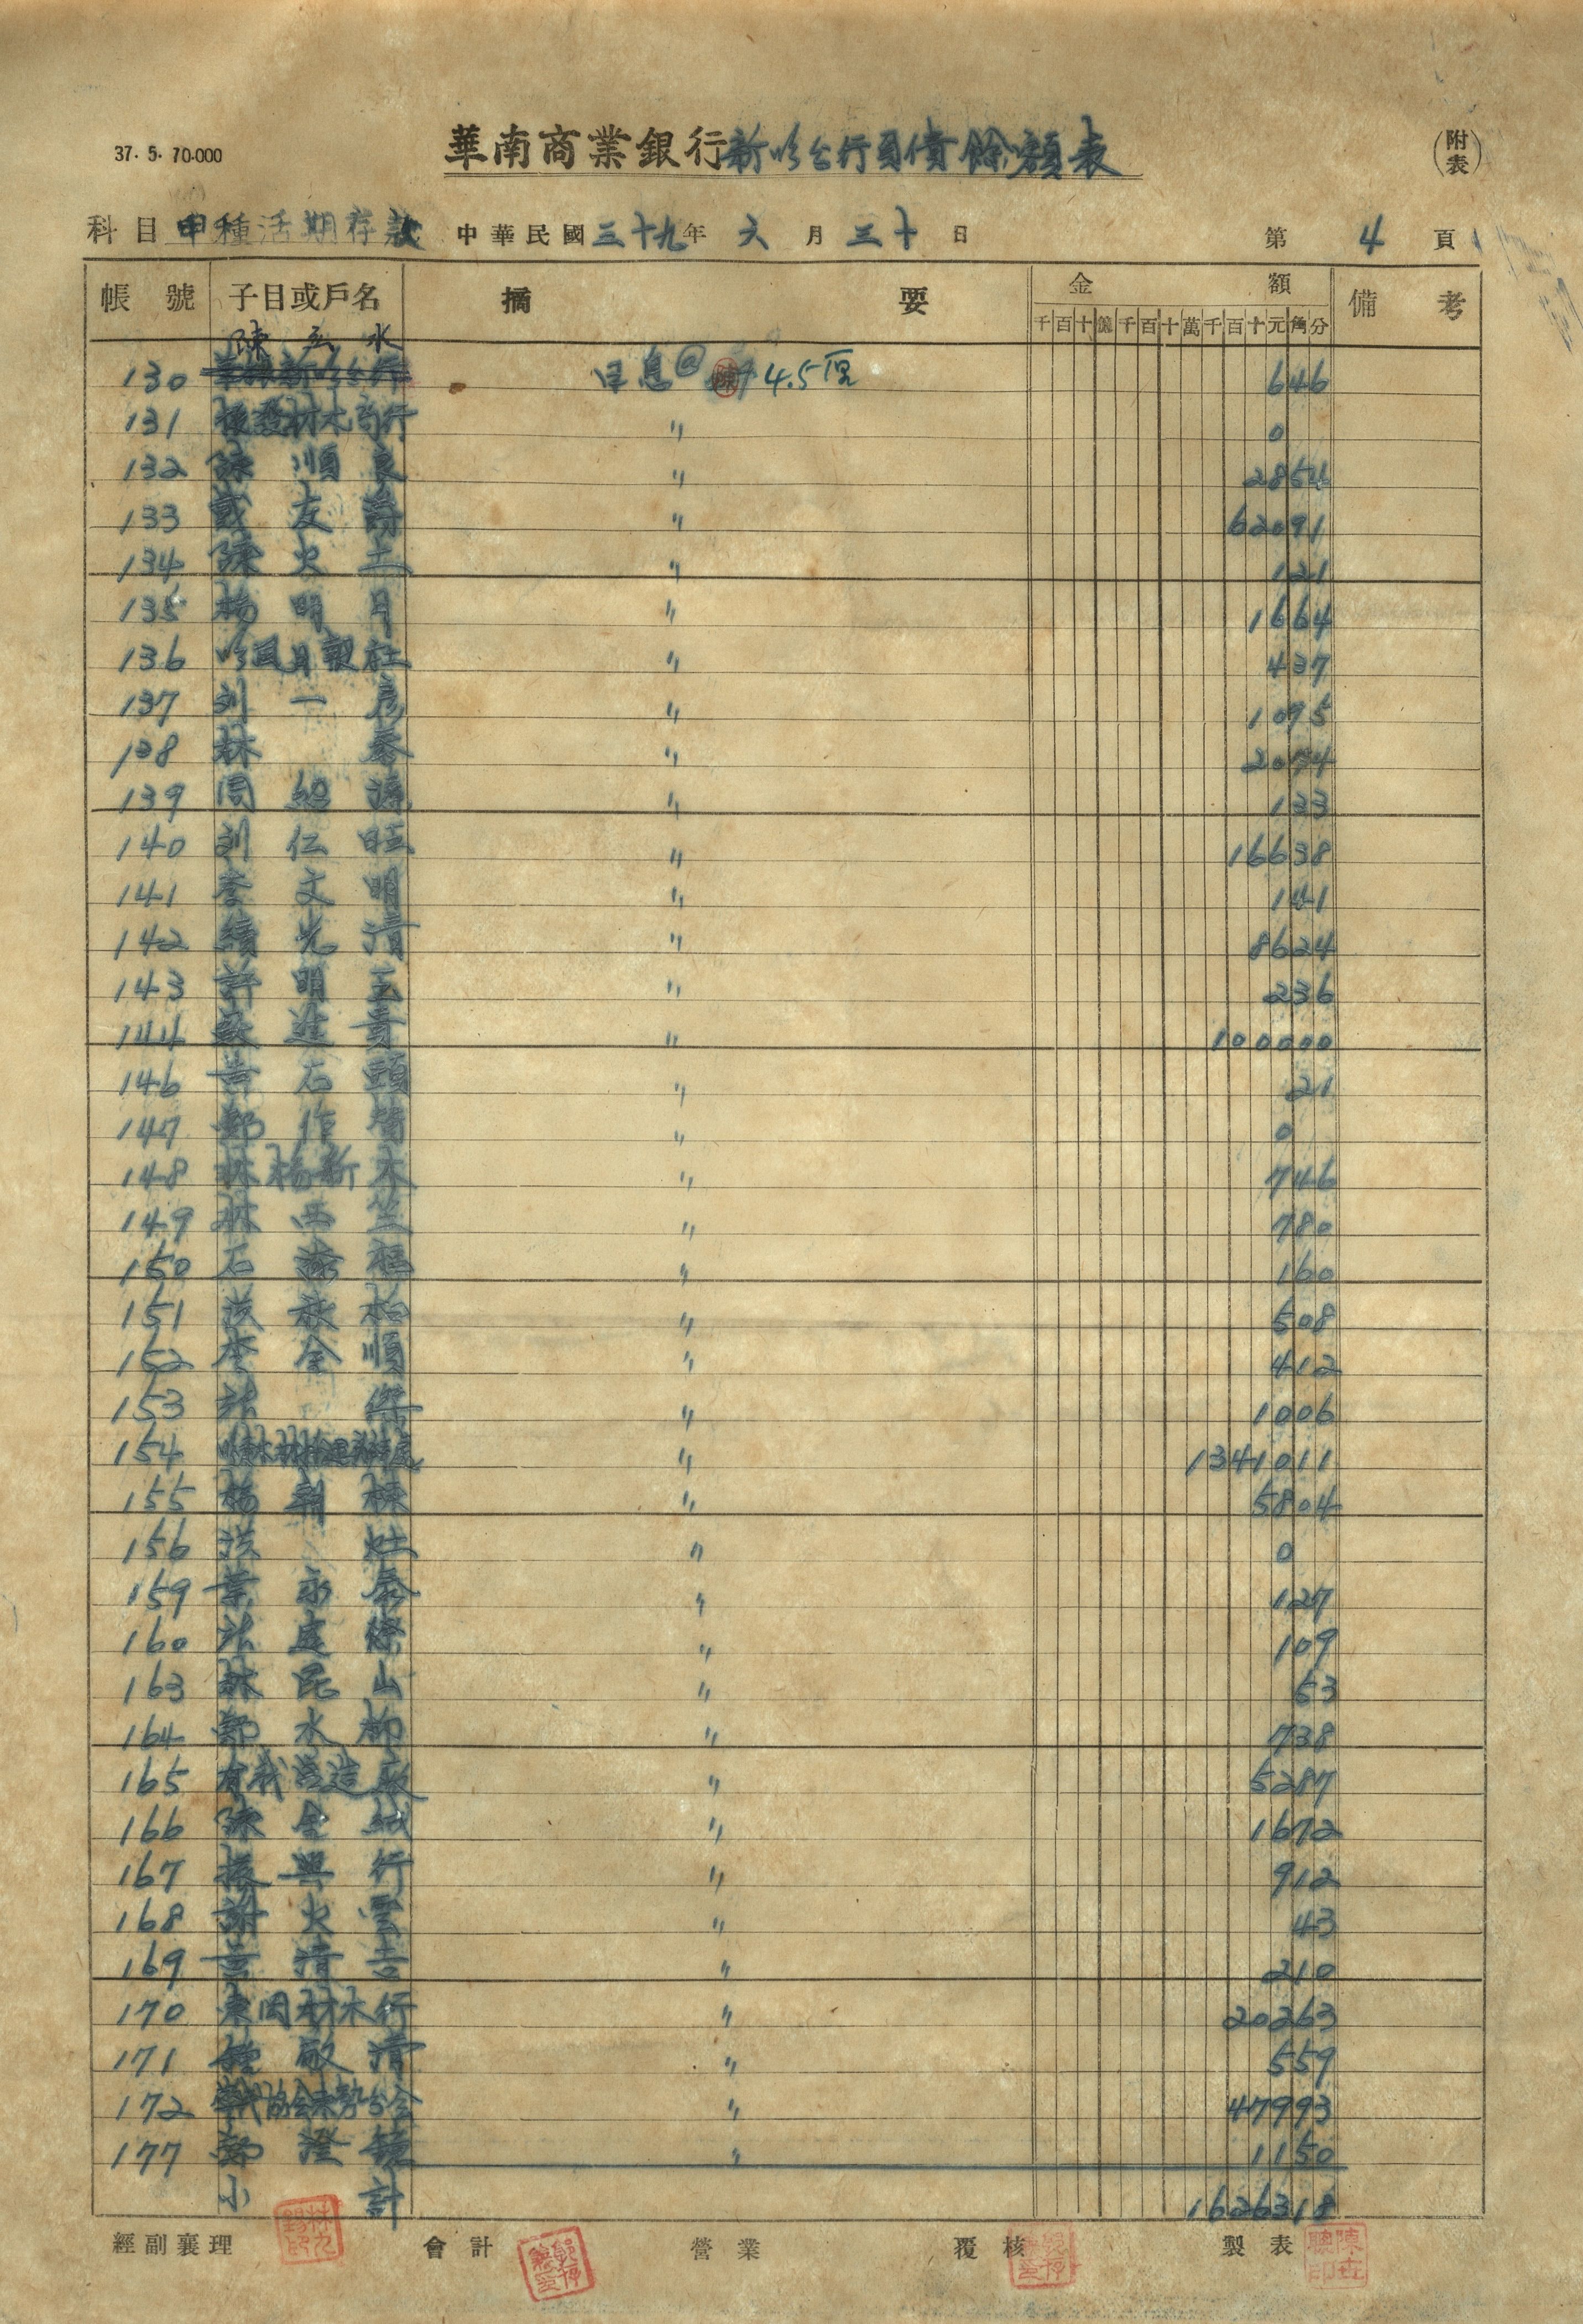 37. 5. 70.000
華南商業銀行新竹分行負債餘額表
(附表)
科目 甲種活期存款 中華民國三十九年 六 月 三十 日 第 4 頁
帳號 子目或戶名 摘要 金額 備考
千百十億千百十萬千百十元角分
陳玉水
130 日息@ 4.5厘 646
131 材木商行 〃 0
132 陳順良 〃 2854
133 戴友 〃 62091
134 陳火土 〃 121
135 楊明月 〃 1664
136 吟風月報社 〃 437
137 刘一彥 〃 1095
138 林 〃 2094
139 周紹 〃 133
140 刘仁旺 〃 16638
141 李文明 〃 141
142 光清 〃 8624
143 許明玉 〃 236
144 蘇進貴 〃 100000
146 黃石頭 〃 21
147 鄭作 〃 0
148 林楊新木 〃 746
149 林西 〃 780
150 石 〃 160
151 洪 〃 508
152 李金順 〃 412
153 〃 1006
154 〃 1341011
155 楊朝棟 〃 5804
156 洪灶 〃 0
159 葉永泰 〃 127
160 〃 109
163 林昆山 〃 53
164 鄭水柳 〃 738
165 營造廠 〃 5287
166 陳金城 〃 1672
167 振興行 〃 912
168 謝火雲 〃 43
169 黃清吉 〃 210
170 東岡材木行 〃 20263
171 鍾敏清 〃 559
172 〃 47993
177 鄭澄鏡 〃 1150
小計 1626318
經副襄理 會計 營業 覆核 製表